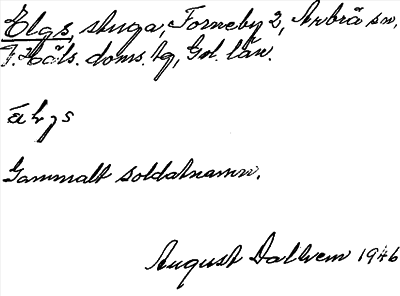 Elgs stuga, Forneby 2, Arbrä sn,
V. Häls. doms. tg, Gvl. län.
älgs
Gammalt soldatnamn.
August Dallvem 1946